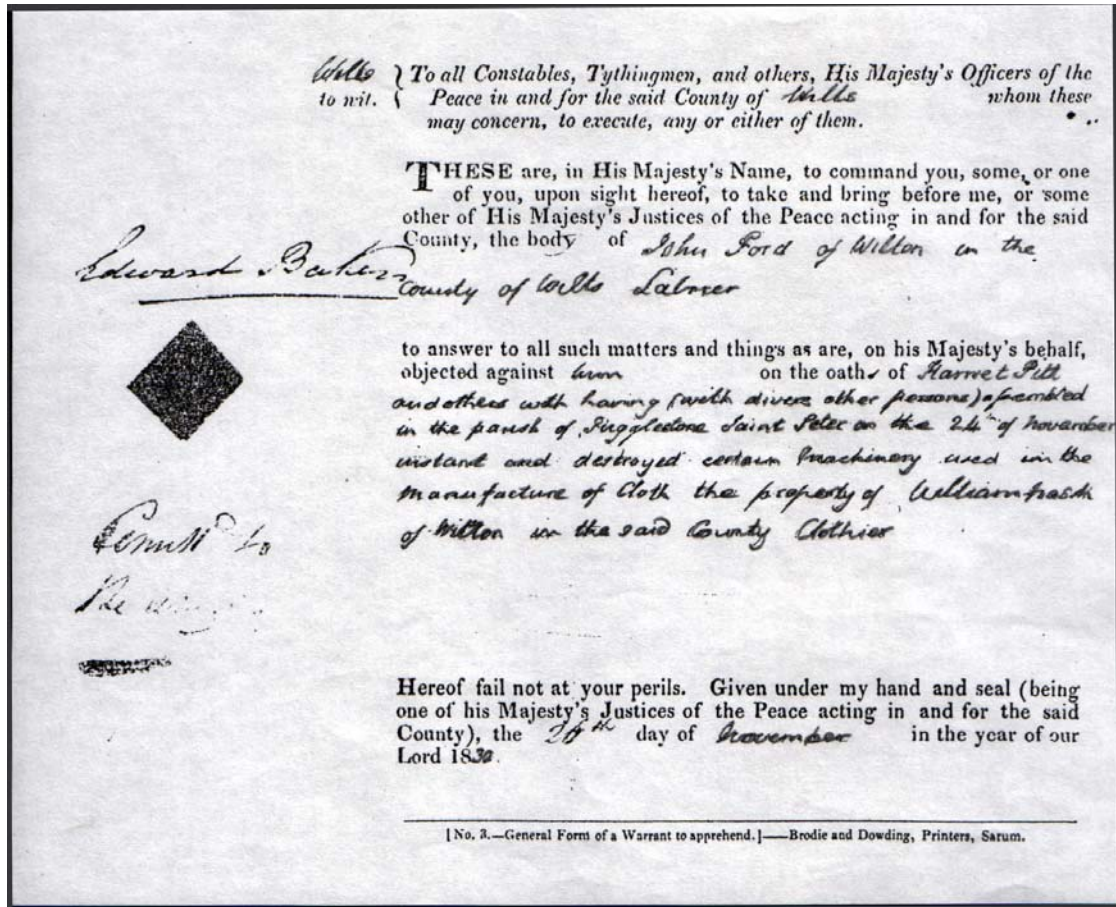 Wilts } To all Constables, Tythingmen, and others, His Majesty's Officers of the
to wit. { Peace in and for the said County of Wilts whom these
may concern, to execute, any or either of them.
THESE are, in His Majesty's Name, to command you, some, or one
of you, upon sight hereof, to take and bring before me, or some
other of His Majesty's Justices of the Peace acting in and for the said
County, the body of John Ford of Wilton in the
Edward Baker
County of Wilts Labrer
to answer to all such matters and things as are, on his Majesty's behalf,
objected against him on the oath of Harriet Pitt
and others with having (with divers other persons) assembled
in the parish of Fuggledone Saint Peter on the 24th of November
instant and destroyed certain Machinery used in the
Manufacture of Cloth the property of William
of Wilton in the said County Clothier
Hereof fail not at your perils. Given under my hand and seal (being
one of his Majesty's Justices of the Peace acting in and for the said
County), the 26th day of November in the year of our
Lord 1830.
[No. 3.—General Form of a Warrant to apprehend.]——Brodie and Dowding, Printers, Sarum.